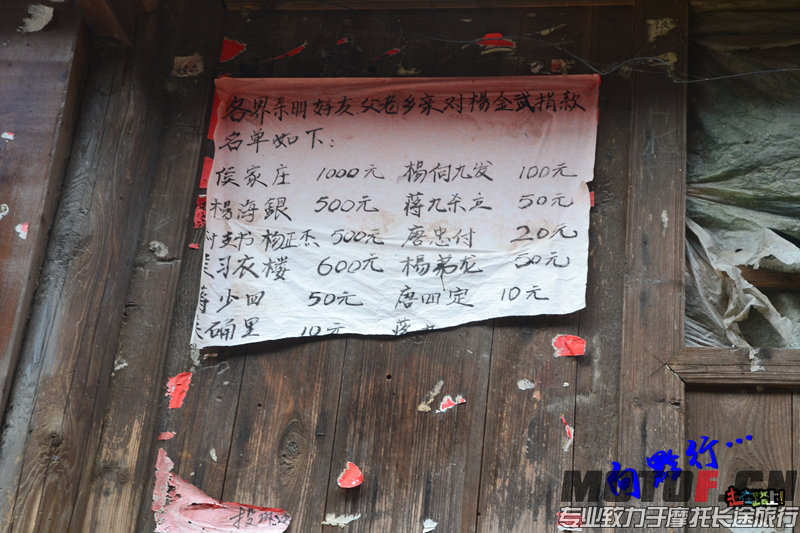 各界亲朋好友.父老乡亲对楊金武捐款
名单如下：
侯家庄 1000元 楊何九发 100元
楊海銀 500元 蒋九杀立 50元
支书 杨正杰 500元 唐忠付 20元
习衣楼 600元 楊弟龙 50元
蒋少四 50元 唐四定 10元
硧里 10元
向黔行…
MOTOF.CN
专业致力于摩托长途旅行